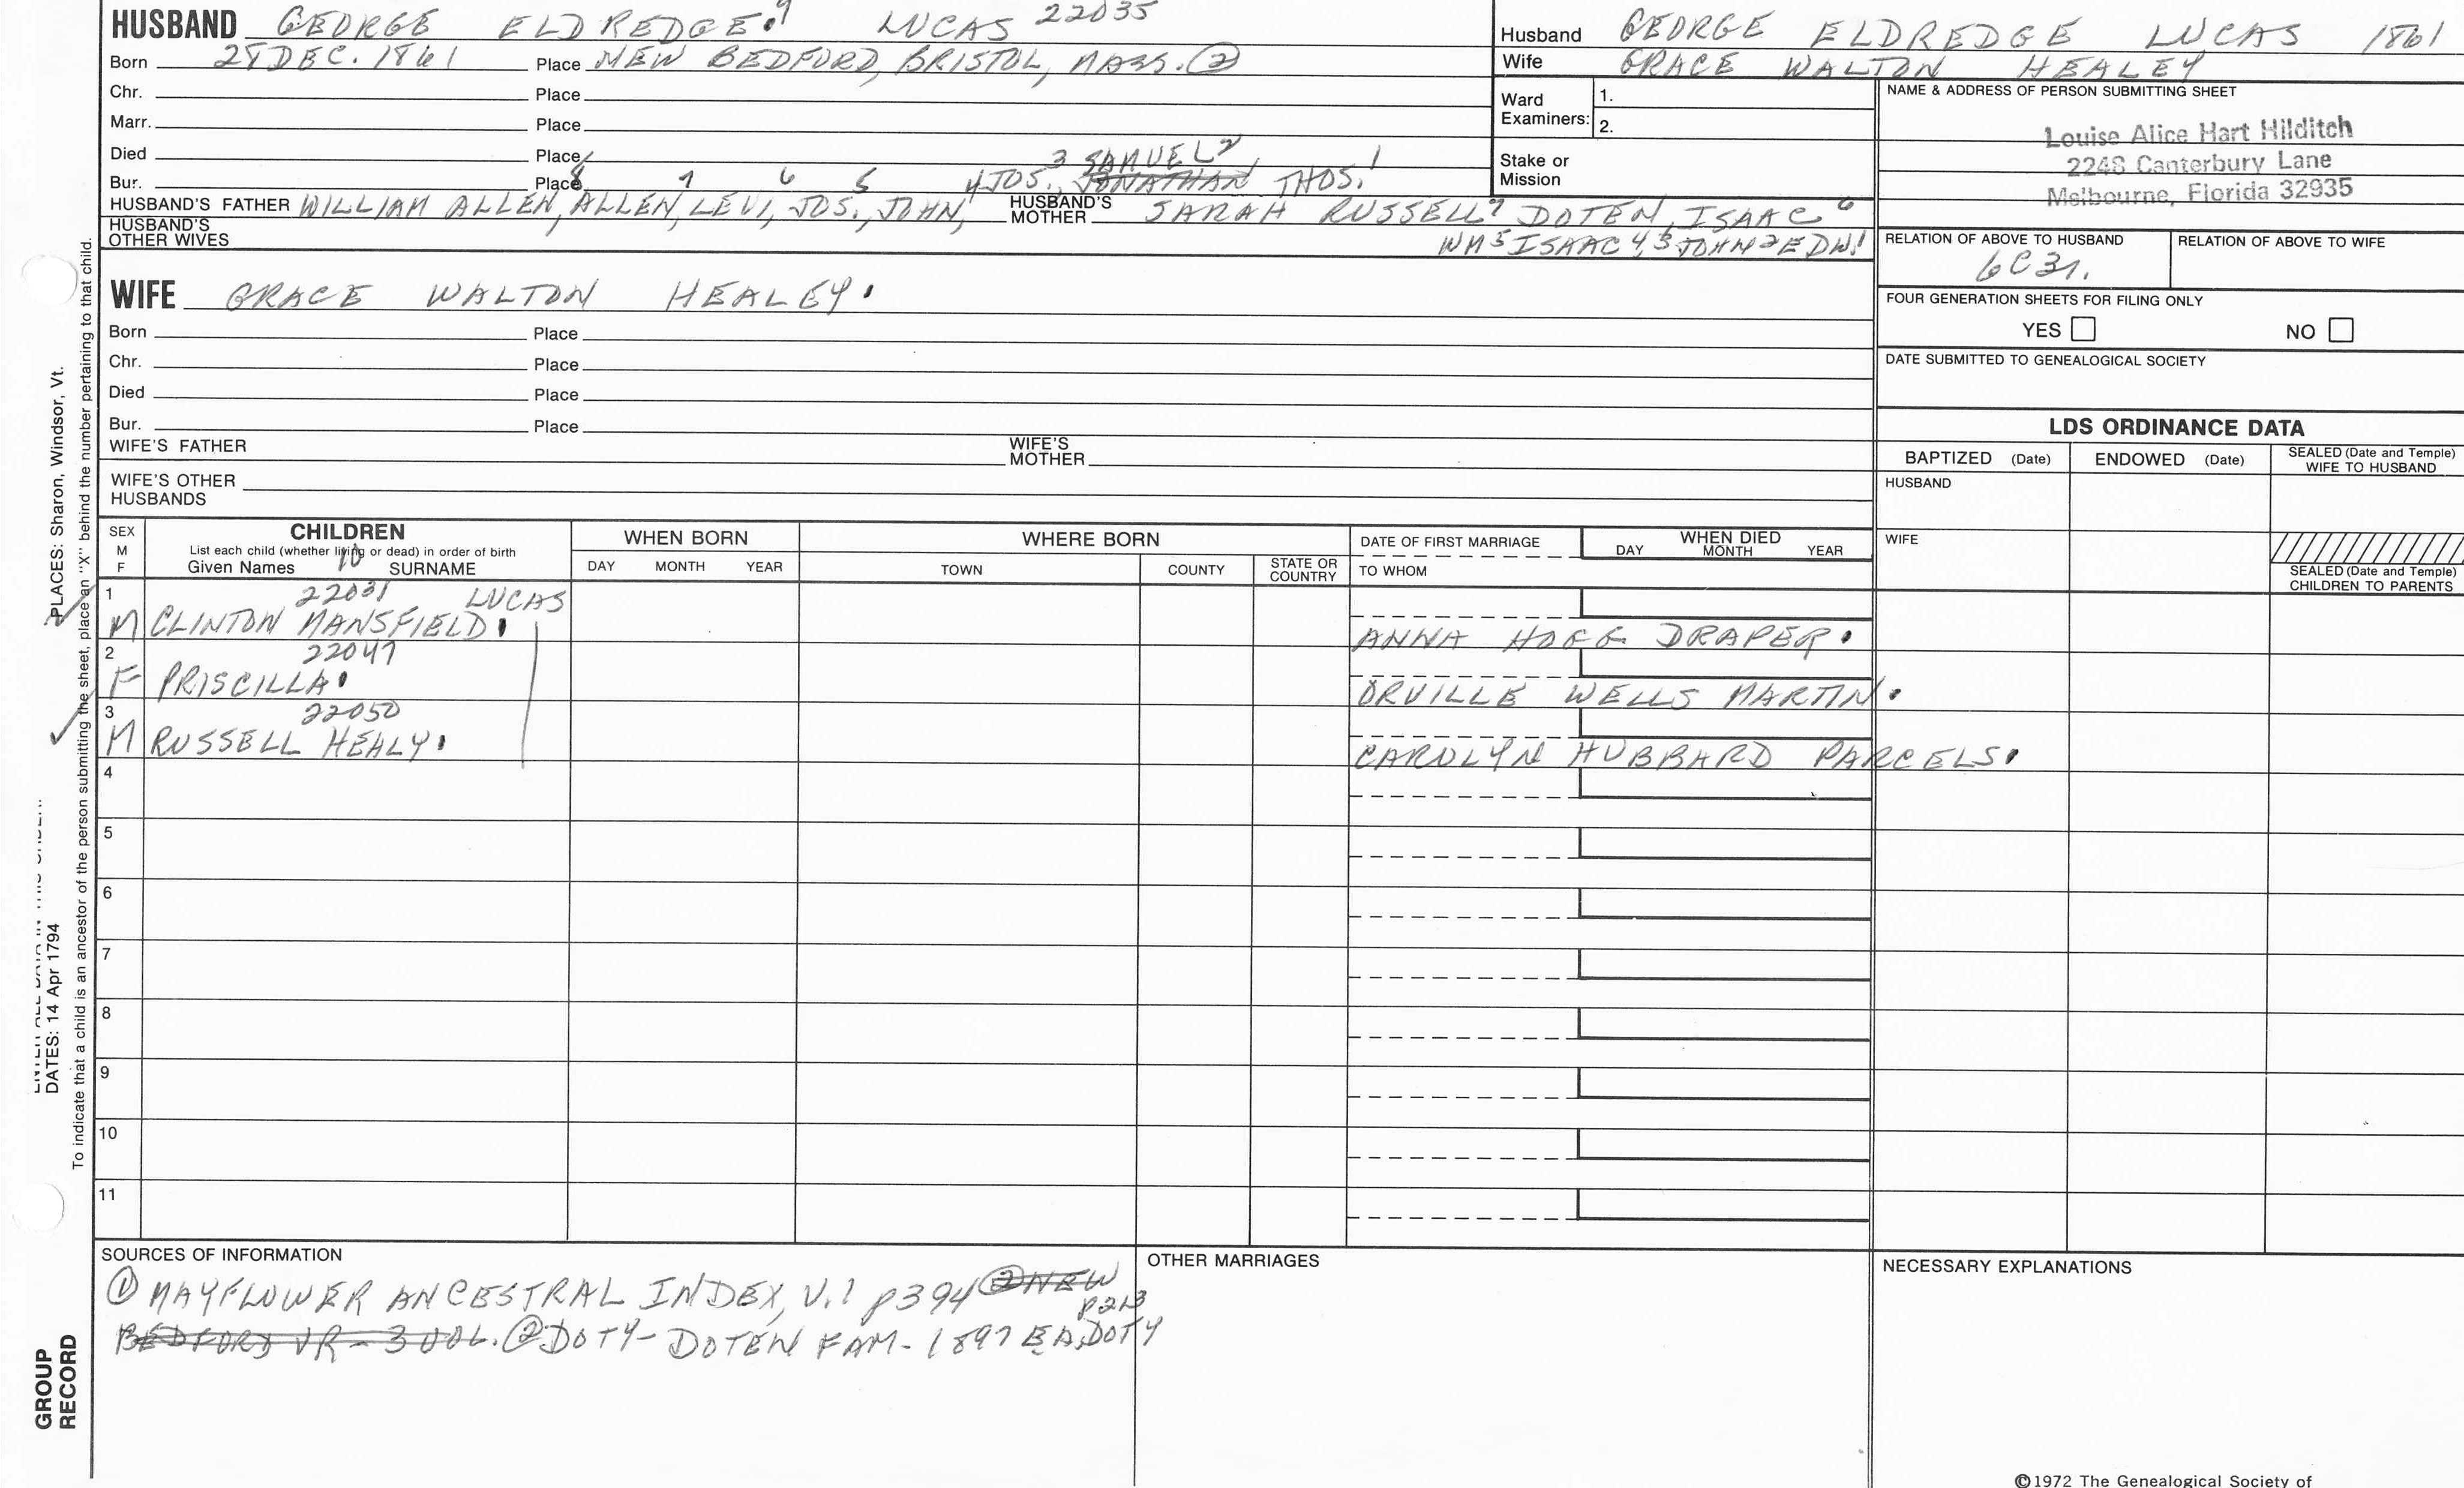 HUSBAND GEORGE ELDREDGE.9 LUCAS 22035
Born 28 DEC. 1861 Place NEW BEDFORD, BRISTOL, MASS. ②
Chr. Place
Marr. Place
Died Place
Bur. Place
8 7 6 5 4 JOS., 3 SAMUEL2 JONATHAN THOS.1
HUSBAND'S FATHER WILLIAM ALLEN, ALLEN, LEVI, JOS., JOHN, HUSBAND'S MOTHER SARAH RUSSELL7 DOTEN, ISAAC6
HUSBAND'S OTHER WIVES WM5 ISAAC 4,3 JOHN2 EDW.1
WIFE GRACE WALTON HEALEY.
Born Place
Chr. Place
Died Place
Bur. Place
WIFE'S FATHER WIFE'S MOTHER
WIFE'S OTHER HUSBANDS
Husband GEORGE ELDREDGE LUCAS 1861
Wife GRACE WALTON HEALEY
Ward Examiners: 1.
2.
Stake or Mission
NAME & ADDRESS OF PERSON SUBMITTING SHEET
Louise Alice Hart Hilditch
2248 Canterbury Lane
Melbourne, Florida 32935
RELATION OF ABOVE TO HUSBAND RELATION OF ABOVE TO WIFE
6C3r.
FOUR GENERATION SHEETS FOR FILING ONLY
YES NO
DATE SUBMITTED TO GENEALOGICAL SOCIETY
LDS ORDINANCE DATA
BAPTIZED (Date) ENDOWED (Date) SEALED (Date and Temple) WIFE TO HUSBAND
HUSBAND
WIFE
SEALED (Date and Temple) CHILDREN TO PARENTS
SEX M F
CHILDREN
List each child (whether living or dead) in order of birth
Given Names 10 SURNAME
WHEN BORN
DAY MONTH YEAR
WHERE BORN
TOWN COUNTY STATE OR COUNTRY
DATE OF FIRST MARRIAGE
TO WHOM
WHEN DIED
DAY MONTH YEAR
1 22031 LUCAS
M CLINTON MANSFIELD. ANNA HOGG DRAPER.
2 22047
F PRISCILLA. ORVILLE WELLS MARTIN.
3 22050
M RUSSELL HEALY. CAROLYN HUBBARD PARCELS.
4
5
6
7
8
9
10
11
SOURCES OF INFORMATION
① MAYFLOWER ANCESTRAL INDEX, V.1 p394 ② NEW
BEDFORD VR - 3 VOL. ② DOTY- DOTEN FAM- 1897 E.A. DOTY
p213
OTHER MARRIAGES
NECESSARY EXPLANATIONS
©1972 The Genealogical Society of
PLACES: Sharon, Windsor, Vt.
DATES: 14 Apr 1794
To indicate that a child is an ancestor of the person submitting the sheet, place an "X" behind the number pertaining to that child.
GROUP
RECORD